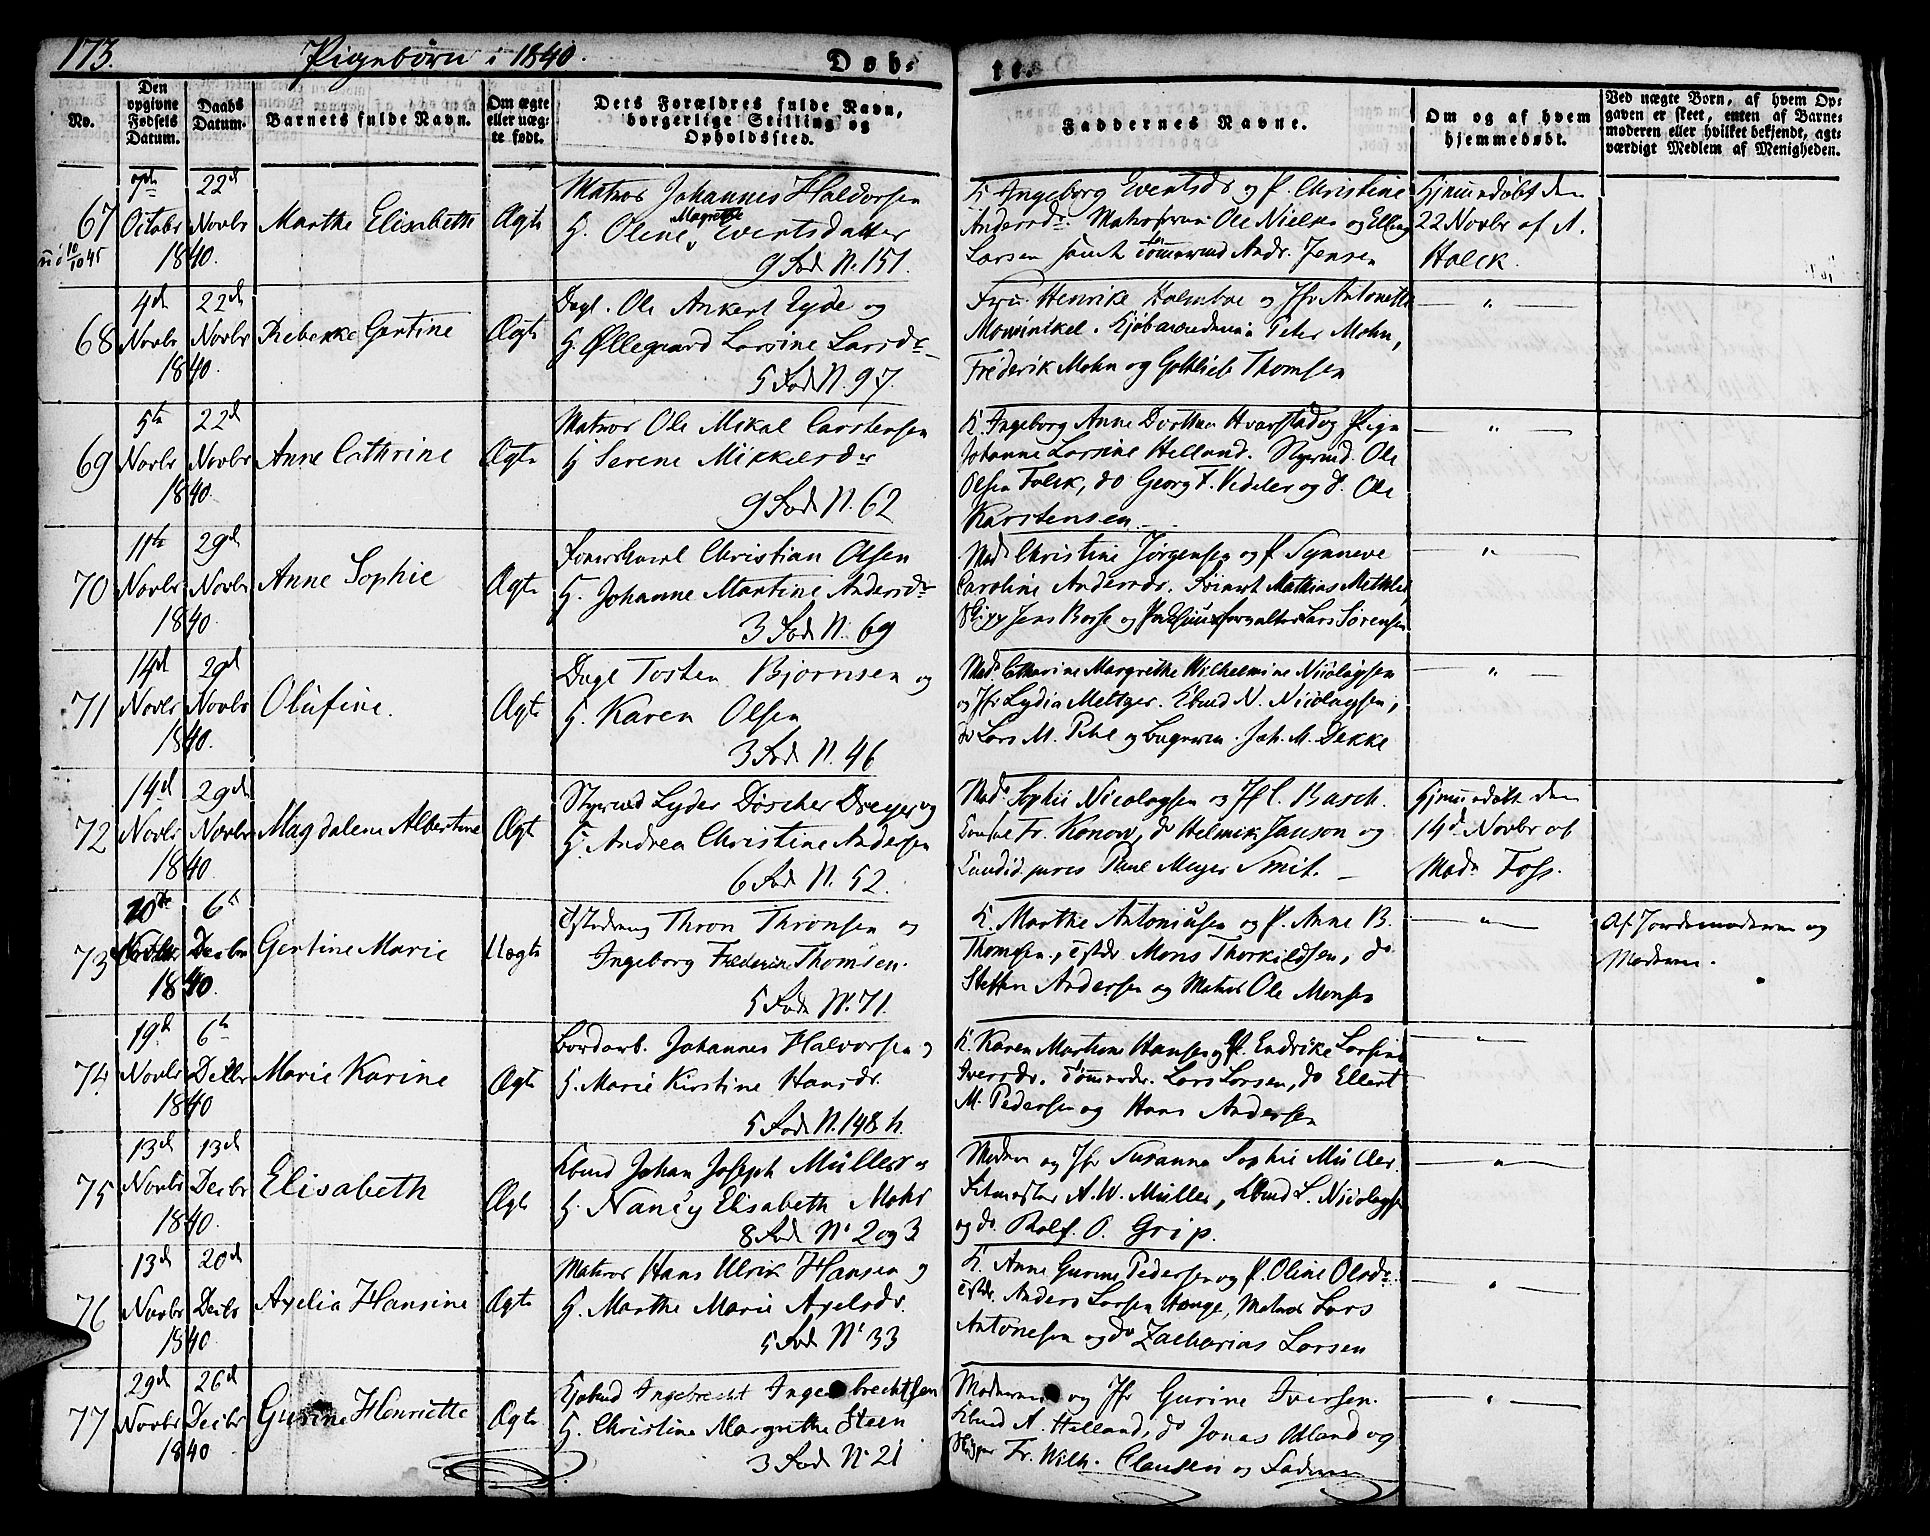 173. Pigebørn i 1840. Døb-
te.
No.
Den opgivne Fødsels Datum.
Daabs Datum.
Barnets fulde Navn.
Om ægte eller uægte født.
Dets Forældres fulde Navn, borgerlige Stilling og Opholdssted.
Faddernes Navne.
Om og af hvem hjemmedøbt.
Ved uægte Børn, af hvem Opgaven er skeet, enten af Barnemoderen eller hvilket bekjendt, agtværdigt Medlem af Menigheden.
67
7de Octobr 1840.
22d Novbr
Marthe Elisabeth
Ægte
Matros Johannes Haldorsen
H. Oline Magrethe Evertsdatter
9 Rod N. 151.
K. Ingeborg Evertsdr og P. Christine
Andersdr. Ole Nielsen og Elling
Larsen samt Tømmermd Andr. Jensen
Hjemmedøbt den
22 Novbr af A.
Holck.
68
4d Novbr 1840.
22d Novbr
Rebekke Gertine
Ægte
Dagl. Ole Ankert Eyde og
H. Øllegaard Larsine Larsdr
5 Rod N. 97
Fru Henrike Holmboe og Jfr Antonette
Mowinkel. Peter Mohn,
Frederik Mohn og Gottlieb Thomsen
69
5te Novbr 1840.
22d Novbr
Anne Cathrine
Ægte
Matros Ole Mikal Carstensen
H Serene Mikkelsdr
9 Rod N. 62
K. Ingeborg Anne Dorthea og Pige
Johanne Larsine Helland. Styrmd. Ole
Olsen Falck, do Georg F. Vedeler og d. Ole
Karstensen.
70
11te Novbr 1840.
29d Novbr
Anne Sophie
Ægte
Christian Olsen
H. Johanne Martine Andersdr
3 Rod N. 69
Mad. Christine Jørgensen og P. Synneve
Caroline Andersdr. Mathias
Jens Lars Sørensen
71
14d Novbr 1840.
29d Novbr
Olufine.
Ægte
Dagl Tosten Bjørnsen og
H. Karen Olsen
3 Rod N. 46
Mad. Cathrine Margrethe Wilhelmine Nicolaysen
og Jfr Lydia Meltzer. Kbmd N. Nicolaysen,
do Lars M. Pihl og Joh. M. Dekke
72
14d Novbr 1840.
29d Novbr
Magdalene Albertine
Ægte
Styrmd Lyder Döscher Dreyer og
H. Andrea Christine Andersen
6 Rod N. 52.
Mad. Sophie Nicolaysen og Jfr C. Basch.
Fr. Konow, do Helmik Janson og
Candid. juris Paul Meyer Smit.
Hjemmedøbt den
14d Novbr af
Mad. Foss.
73
20de Novbr 1840.
6te Decbr
Gertine Marie
Uægte
Thron Thronsen og
Ingeborg Frederike Thomsen.
5 Rod N. 71.
K. Marthe Antonsen og P. Anne B.
Thomsen, Mons Thorkildsen, do
Steffen Andersen og Matros Ole Monsen
Af Jordemoderen og
Moderen.
74
19d Novbr 1840
6te Decbr
Marie Karine
Ægte
Bordarb. Johannes Halvorsen og
H. Marie Kirstine Hansdr.
5 Rod N. 148 h.
K. Karen Martine Hansen og P. Endrike Larsine
Iversdr. Lars Larsen, do Ellert
M. Pedersen og Hans Andersen
75
13d Novbr 1840.
13d Decbr
Elisabeth
Ægte
Kbmd Johan Joseph Müller og
H. Nancy Elisabeth Mohr
8 Rod N. 2 og 3
Moderen og Jfr Susanne Sophie Müller.
A. W. Müller, Kbmd L. Nicolaysen
og do. Rolf. O. Grip.
76
13d Novbr 1840.
20d Decbr
Axelia Hansine
Ægte
Matros Hans Ulrik Hansen og
H. Marthe Marie Axelsdr.
5 Rod N. 33
K. Anne Gurine Pedersen og P. Oline Olsdr.
Anders Larsen Hauge, Matros Lars
Antonesen og do Zacharias Larsen
77
29d Novbr 1840
26d Decbr
Gurine Henriette
Ægte
Kjøbmd Ingebrecht Ingebrechtsen
H. Christine Margrethe Steen
3 Rod N. 21
Moderen og Jfr Gurine Iversen.
Kbmd A. Helland, do Jonas Udland og
Skipper Fr. Wilh. Clausen og Faderen